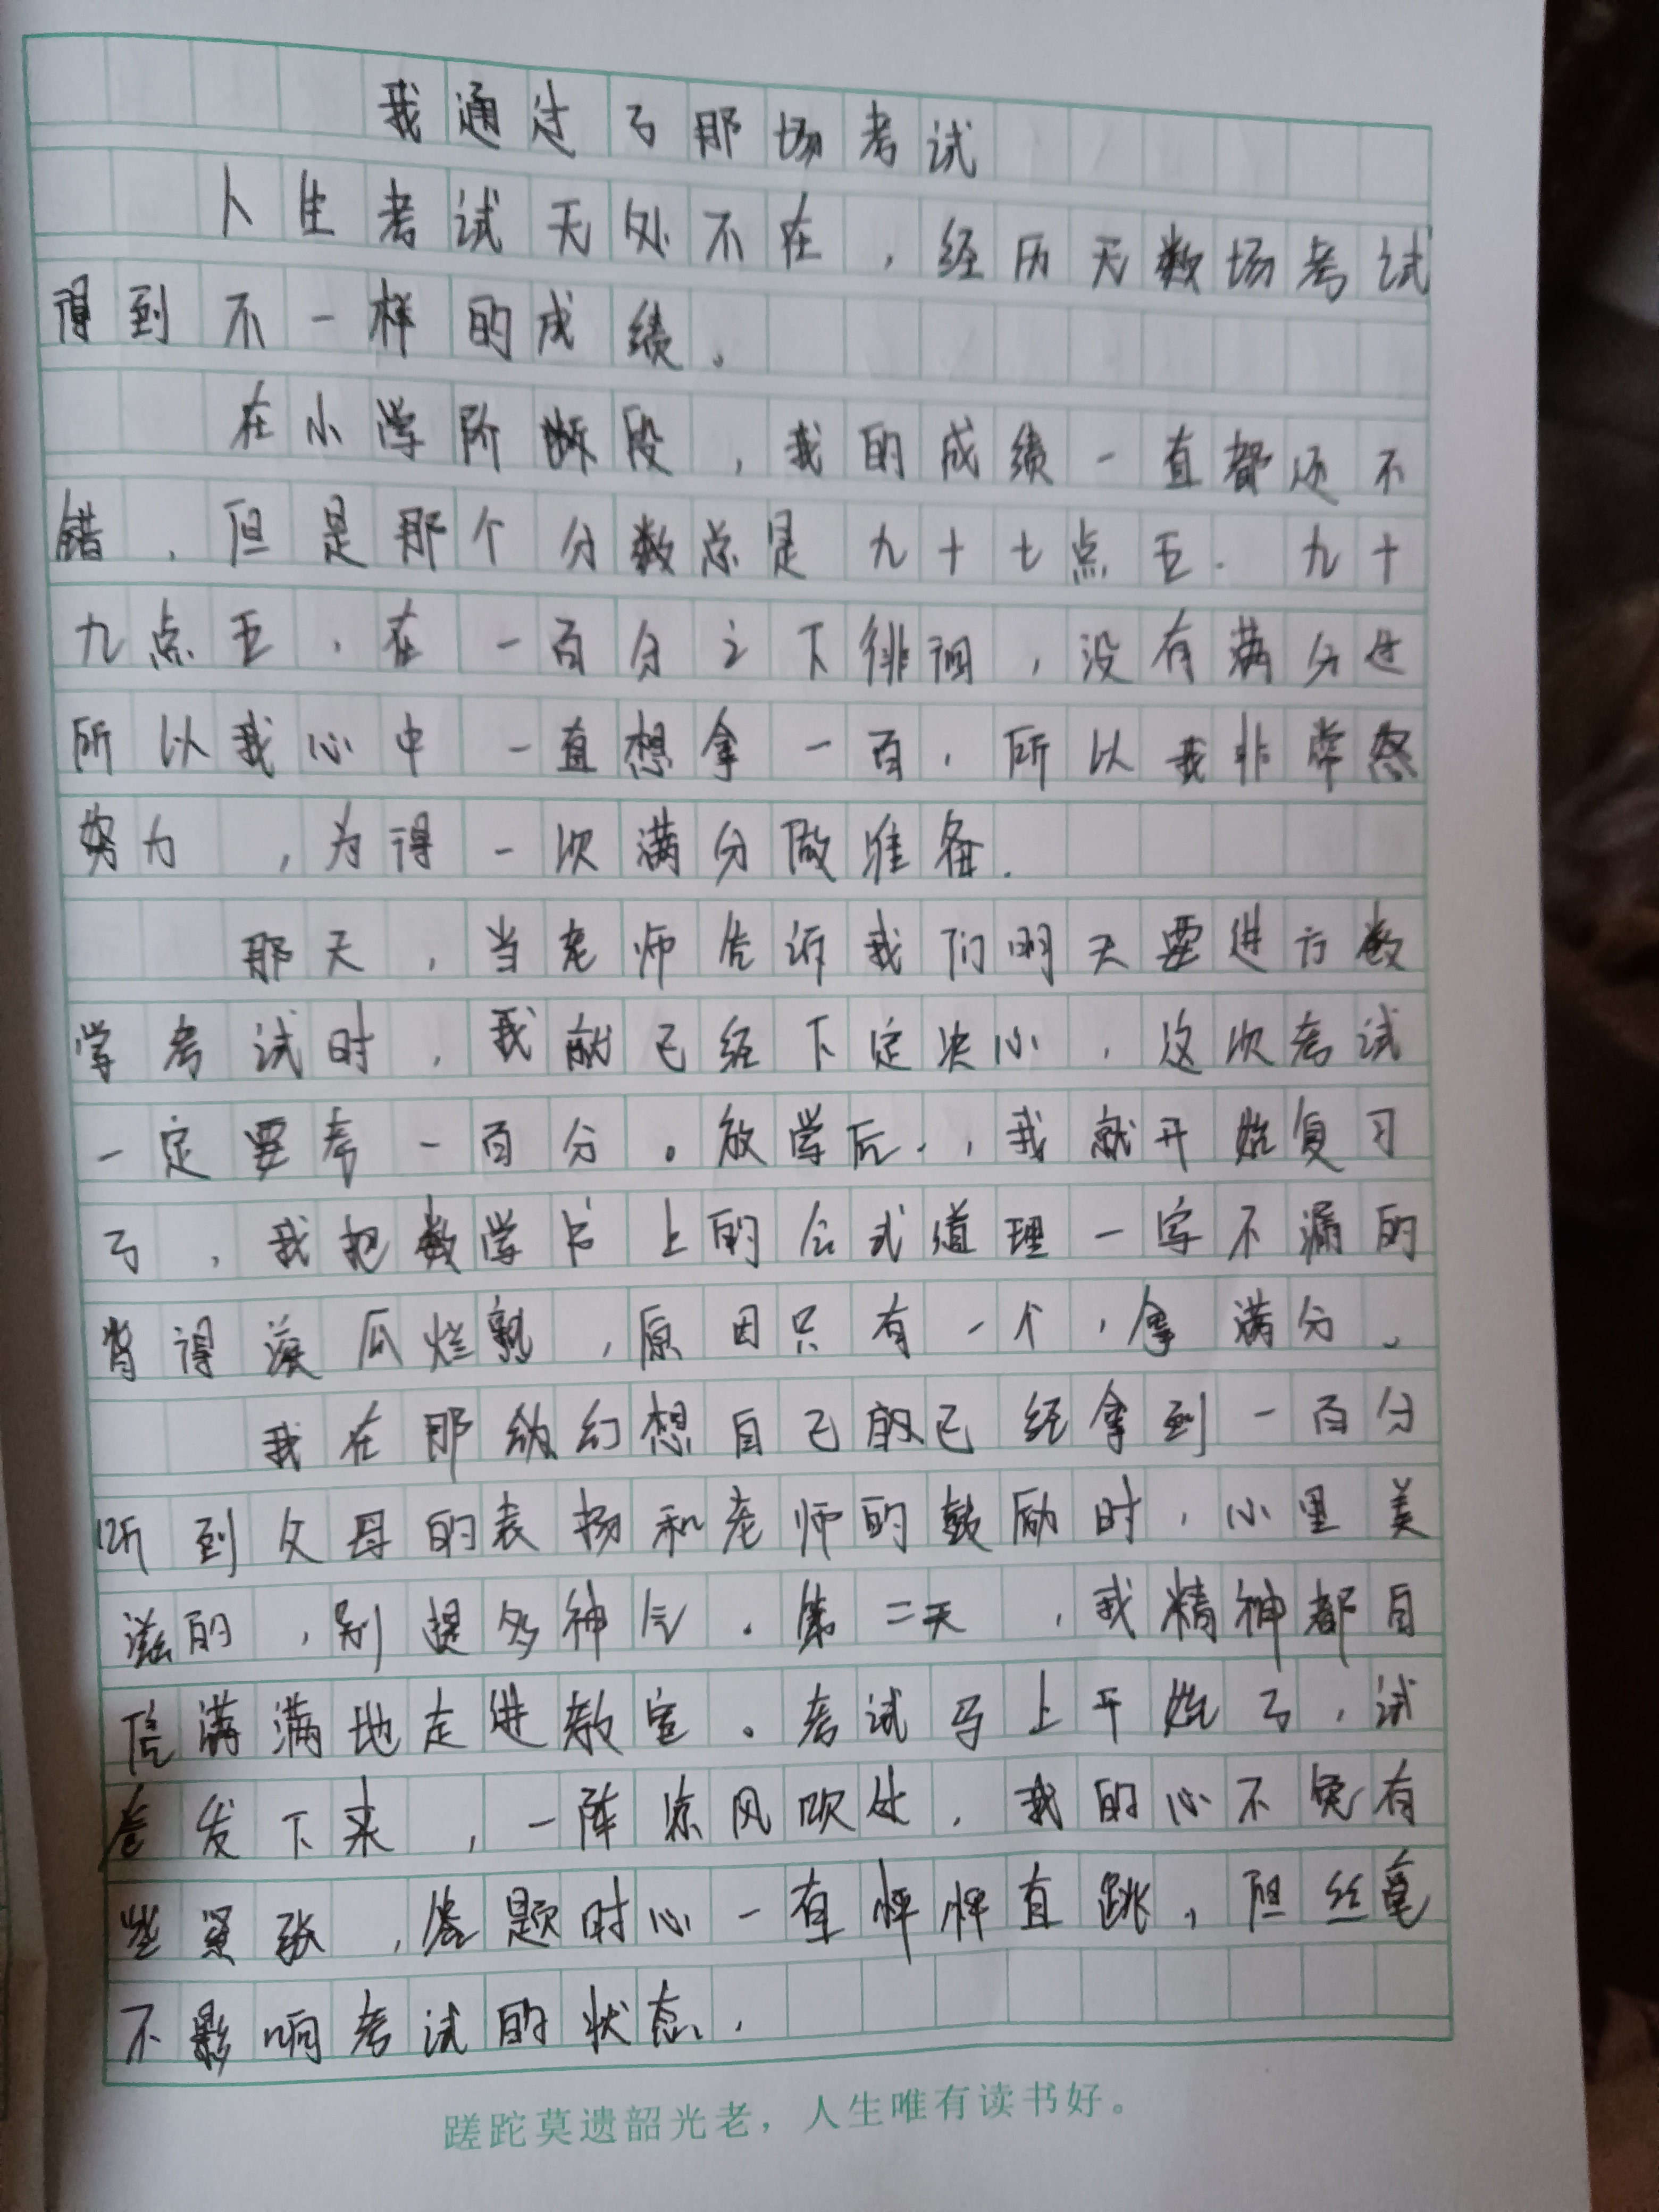 我通过了那场考试
人生考试无处不在，经历无数场考试
得到不一样的成绩。
在小学阶段，我的成绩一直都还不
错，但是那个分数总是九十七点五．九十
九点五，在一百分之下徘徊，没有满分过
所以我心中一直想拿一百，所以我非常
努力，为得一次满分做准备．
那天，当老师告诉我们明天要进行数
学考试时，我就已经下定决心，这次考试
一定要考一百分。放学后，我就开始复习
了，我把数学书上的公式道理一字不漏的
背得滚瓜烂熟，原因只有一个，拿满分、
我在那幻想自己的已经拿到一百分
听到父母的表扬和老师的鼓励时，心里美
滋的，别提多神气．第二天，我精神都自
信满满地走进教室。考试马上开始了，试
卷发下来，一阵凉风吹处，我的心不免有
些紧张，答题时心一直怦怦直跳，但丝毫
不影响考试的状态．
蹉跎莫遗韶光老，人生唯有读书好。